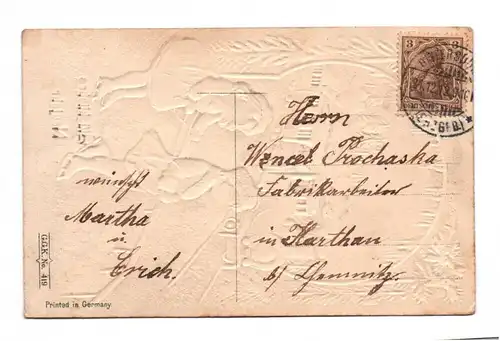 3
Herrn
Wencel Prochaska
Fabrikarbeiter
in Harthau
b/ Chemnitz.
wünscht
Martha
u.
Erich.
G.G.K. No. 419
Printed in Germany